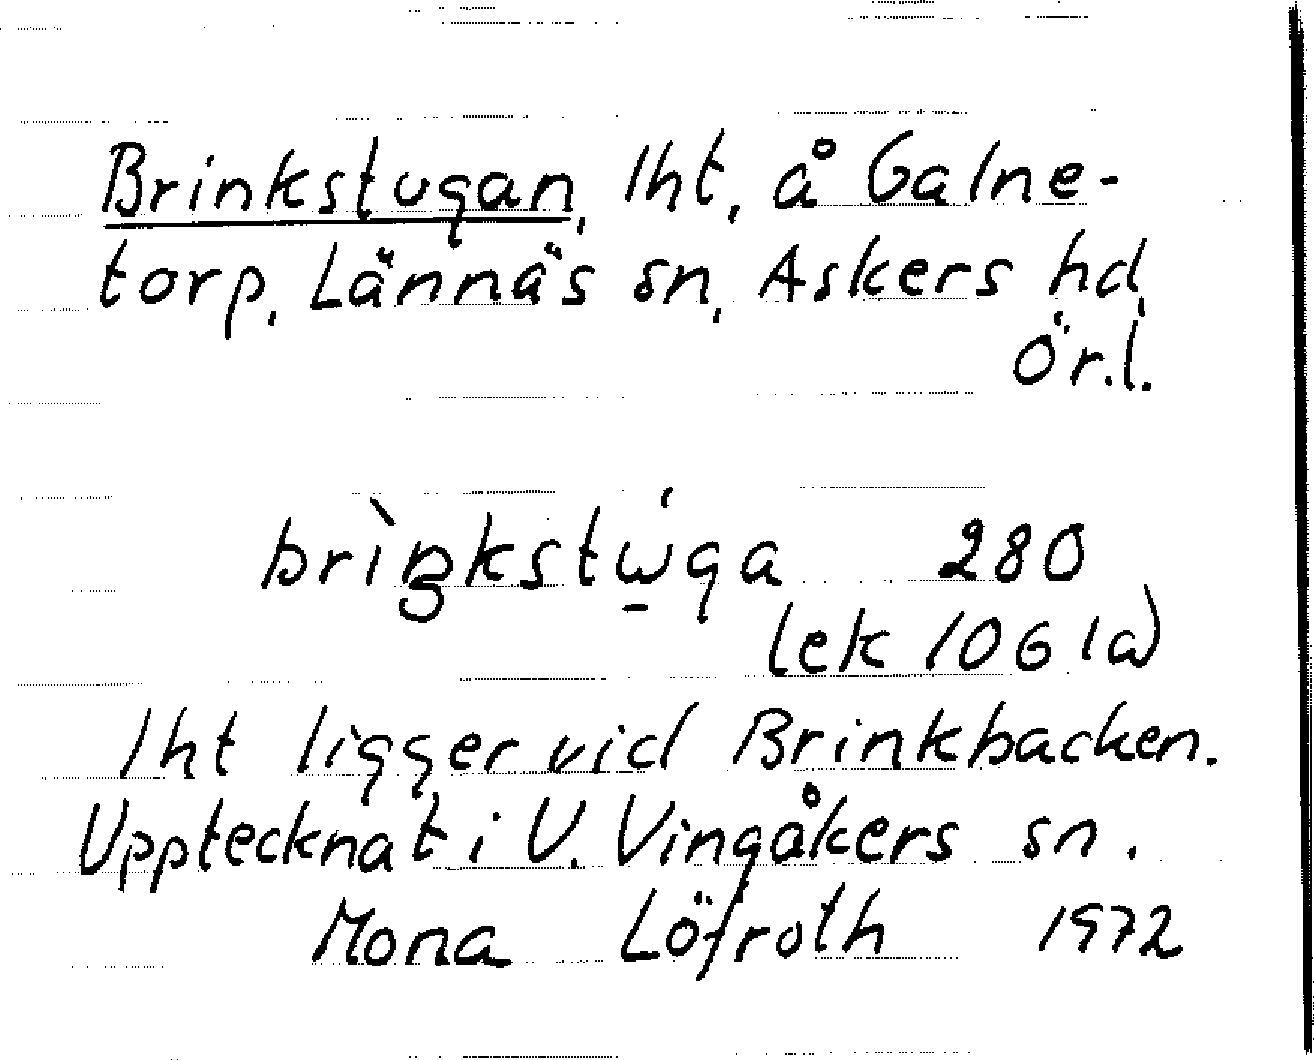 Brinkstugan, lht, å Galne-
torp, Lännäs sn, Askers hd,
Ör.l.
brìŋkstẃ̱ga 280
(ek 1061a)
lht ligger vid Brinkbacken.
Upptecknat i V. Vingåkers sn.
Mona Löfroth 1972